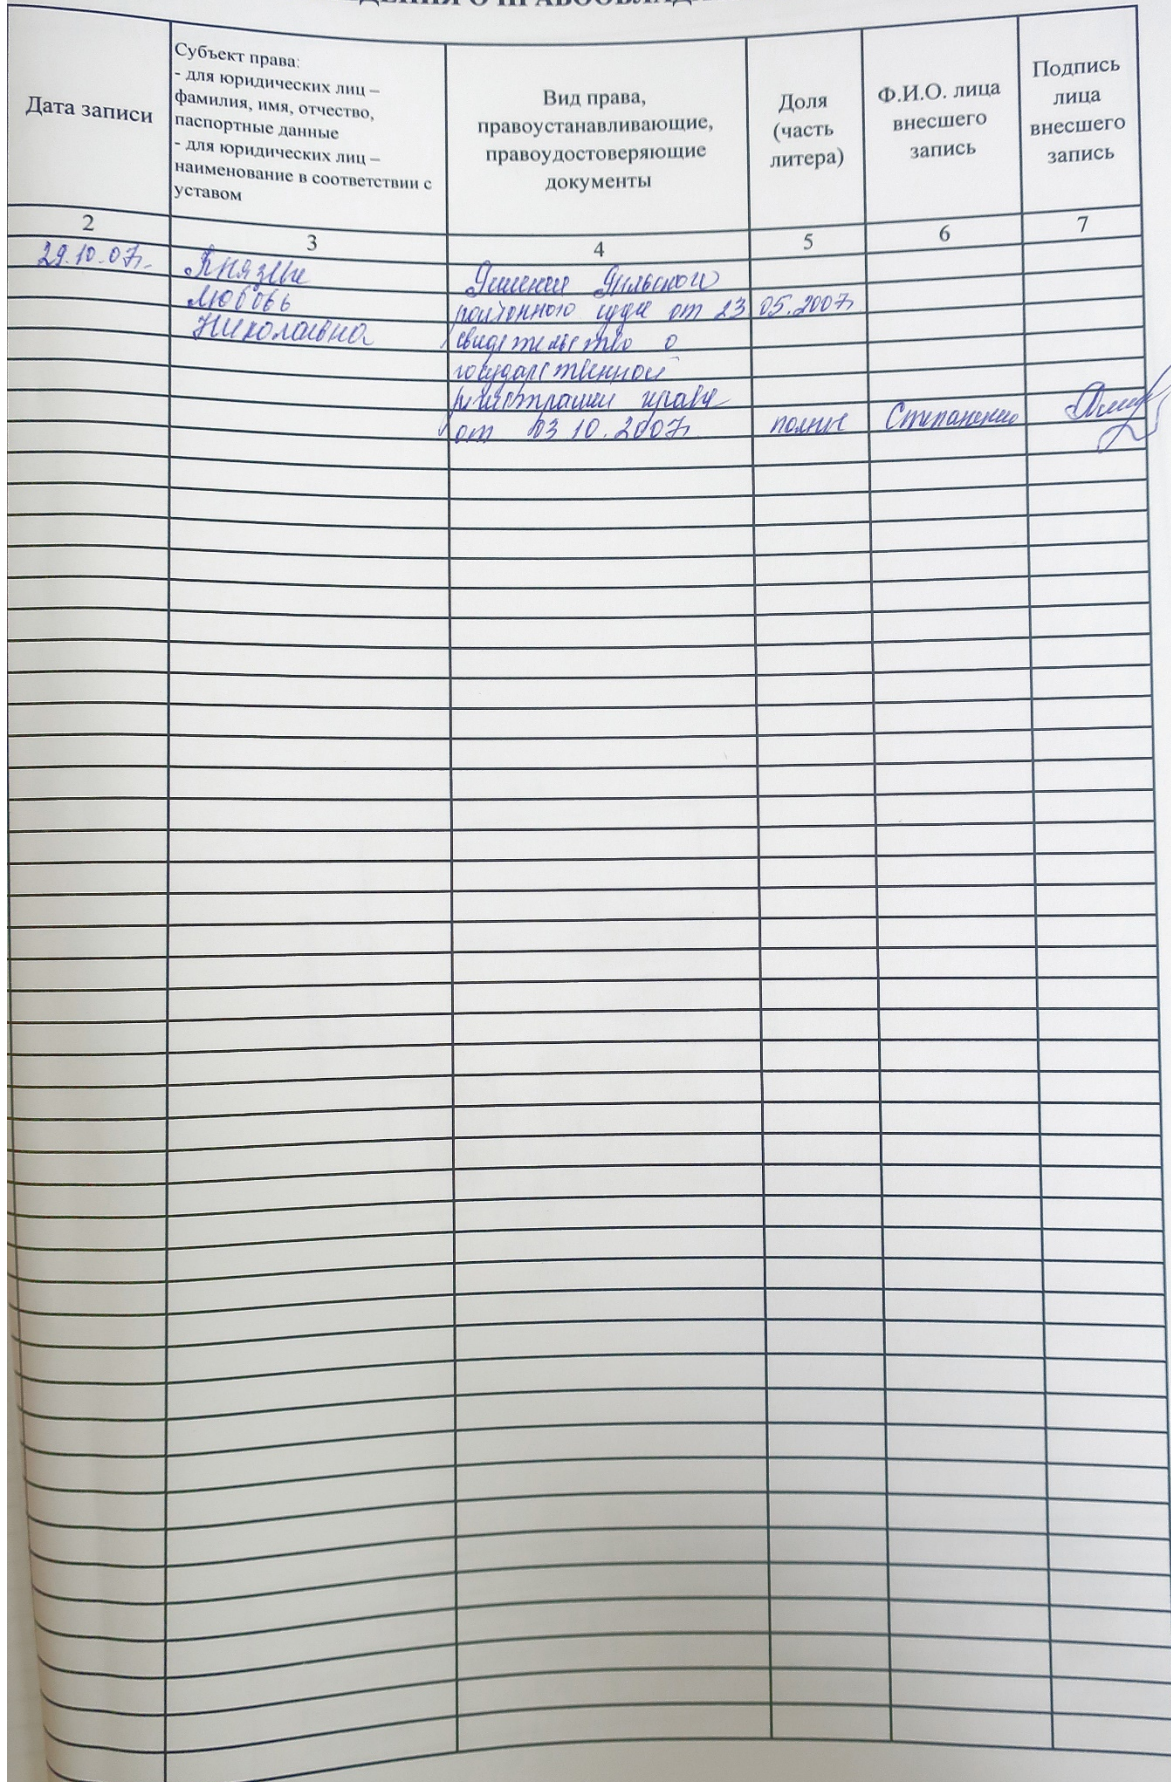 Дата записи
Субъект права:
- для юридических лиц –
фамилия, имя, отчество,
паспортные данные
- для юридических лиц –
наименование в соответствии с
уставом
Вид права,
правоустанавливающие,
правоудостоверяющие
документы
Доля
(часть
литера)
Ф.И.О. лица
внесшего
запись
Подпись
лица
внесшего
запись
2 3 4 5 6 7
29.10.07г.
Князева
Любовь
Николаевна
Решение Рыльского
районного суда от 23 05.2007г
свидетельство о
государственной
регистрации права
от 03 10.2007г
полная
Степаненко